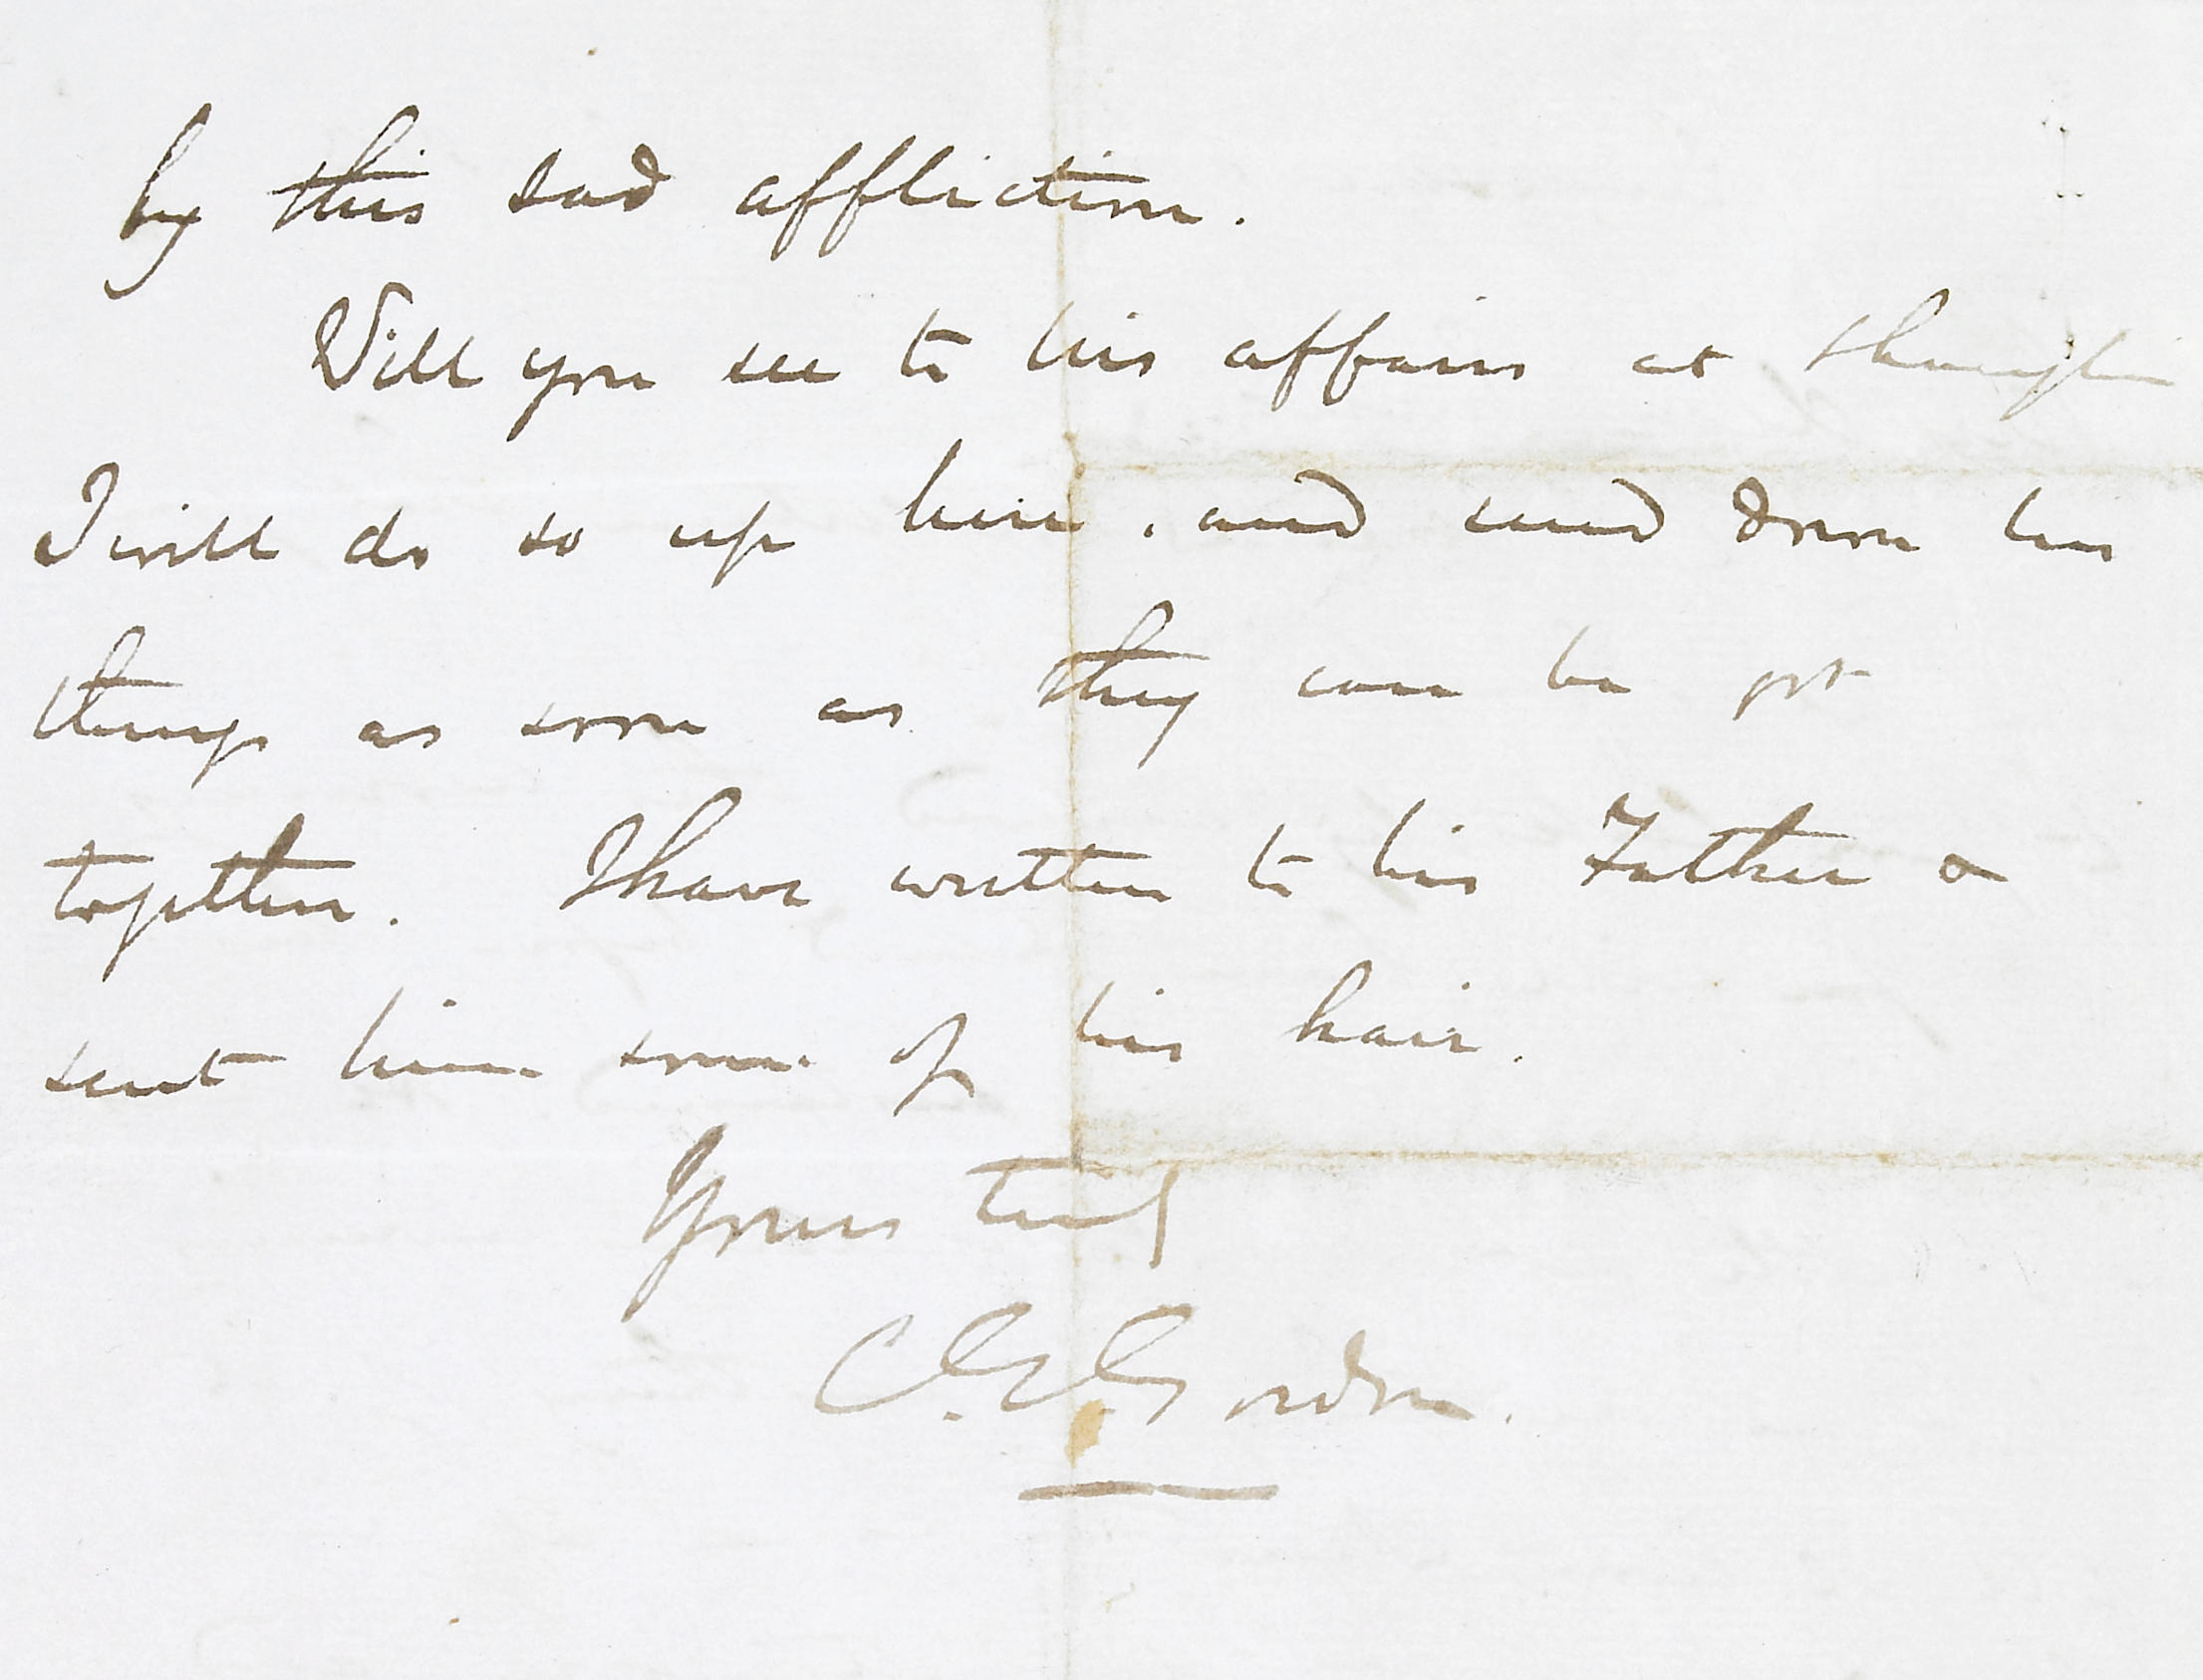 by this sad affliction.
Will you see to his affairs at Shanghai
I will do so up here, and send down his
things as soon as they can be got
together. I have written to his Father &
sent him some of his hair.
Yours truly
C. G. Gordon.